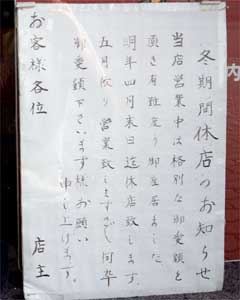 冬期間休店のお知らせ
当店営業中は格別な御愛顧を
頂き有難度う御座居ました
明年四月末日迄休店致します
五月より営業致しますが何卒
御愛顧下さいます様お願い
申し上げます。
店主
お客様各位